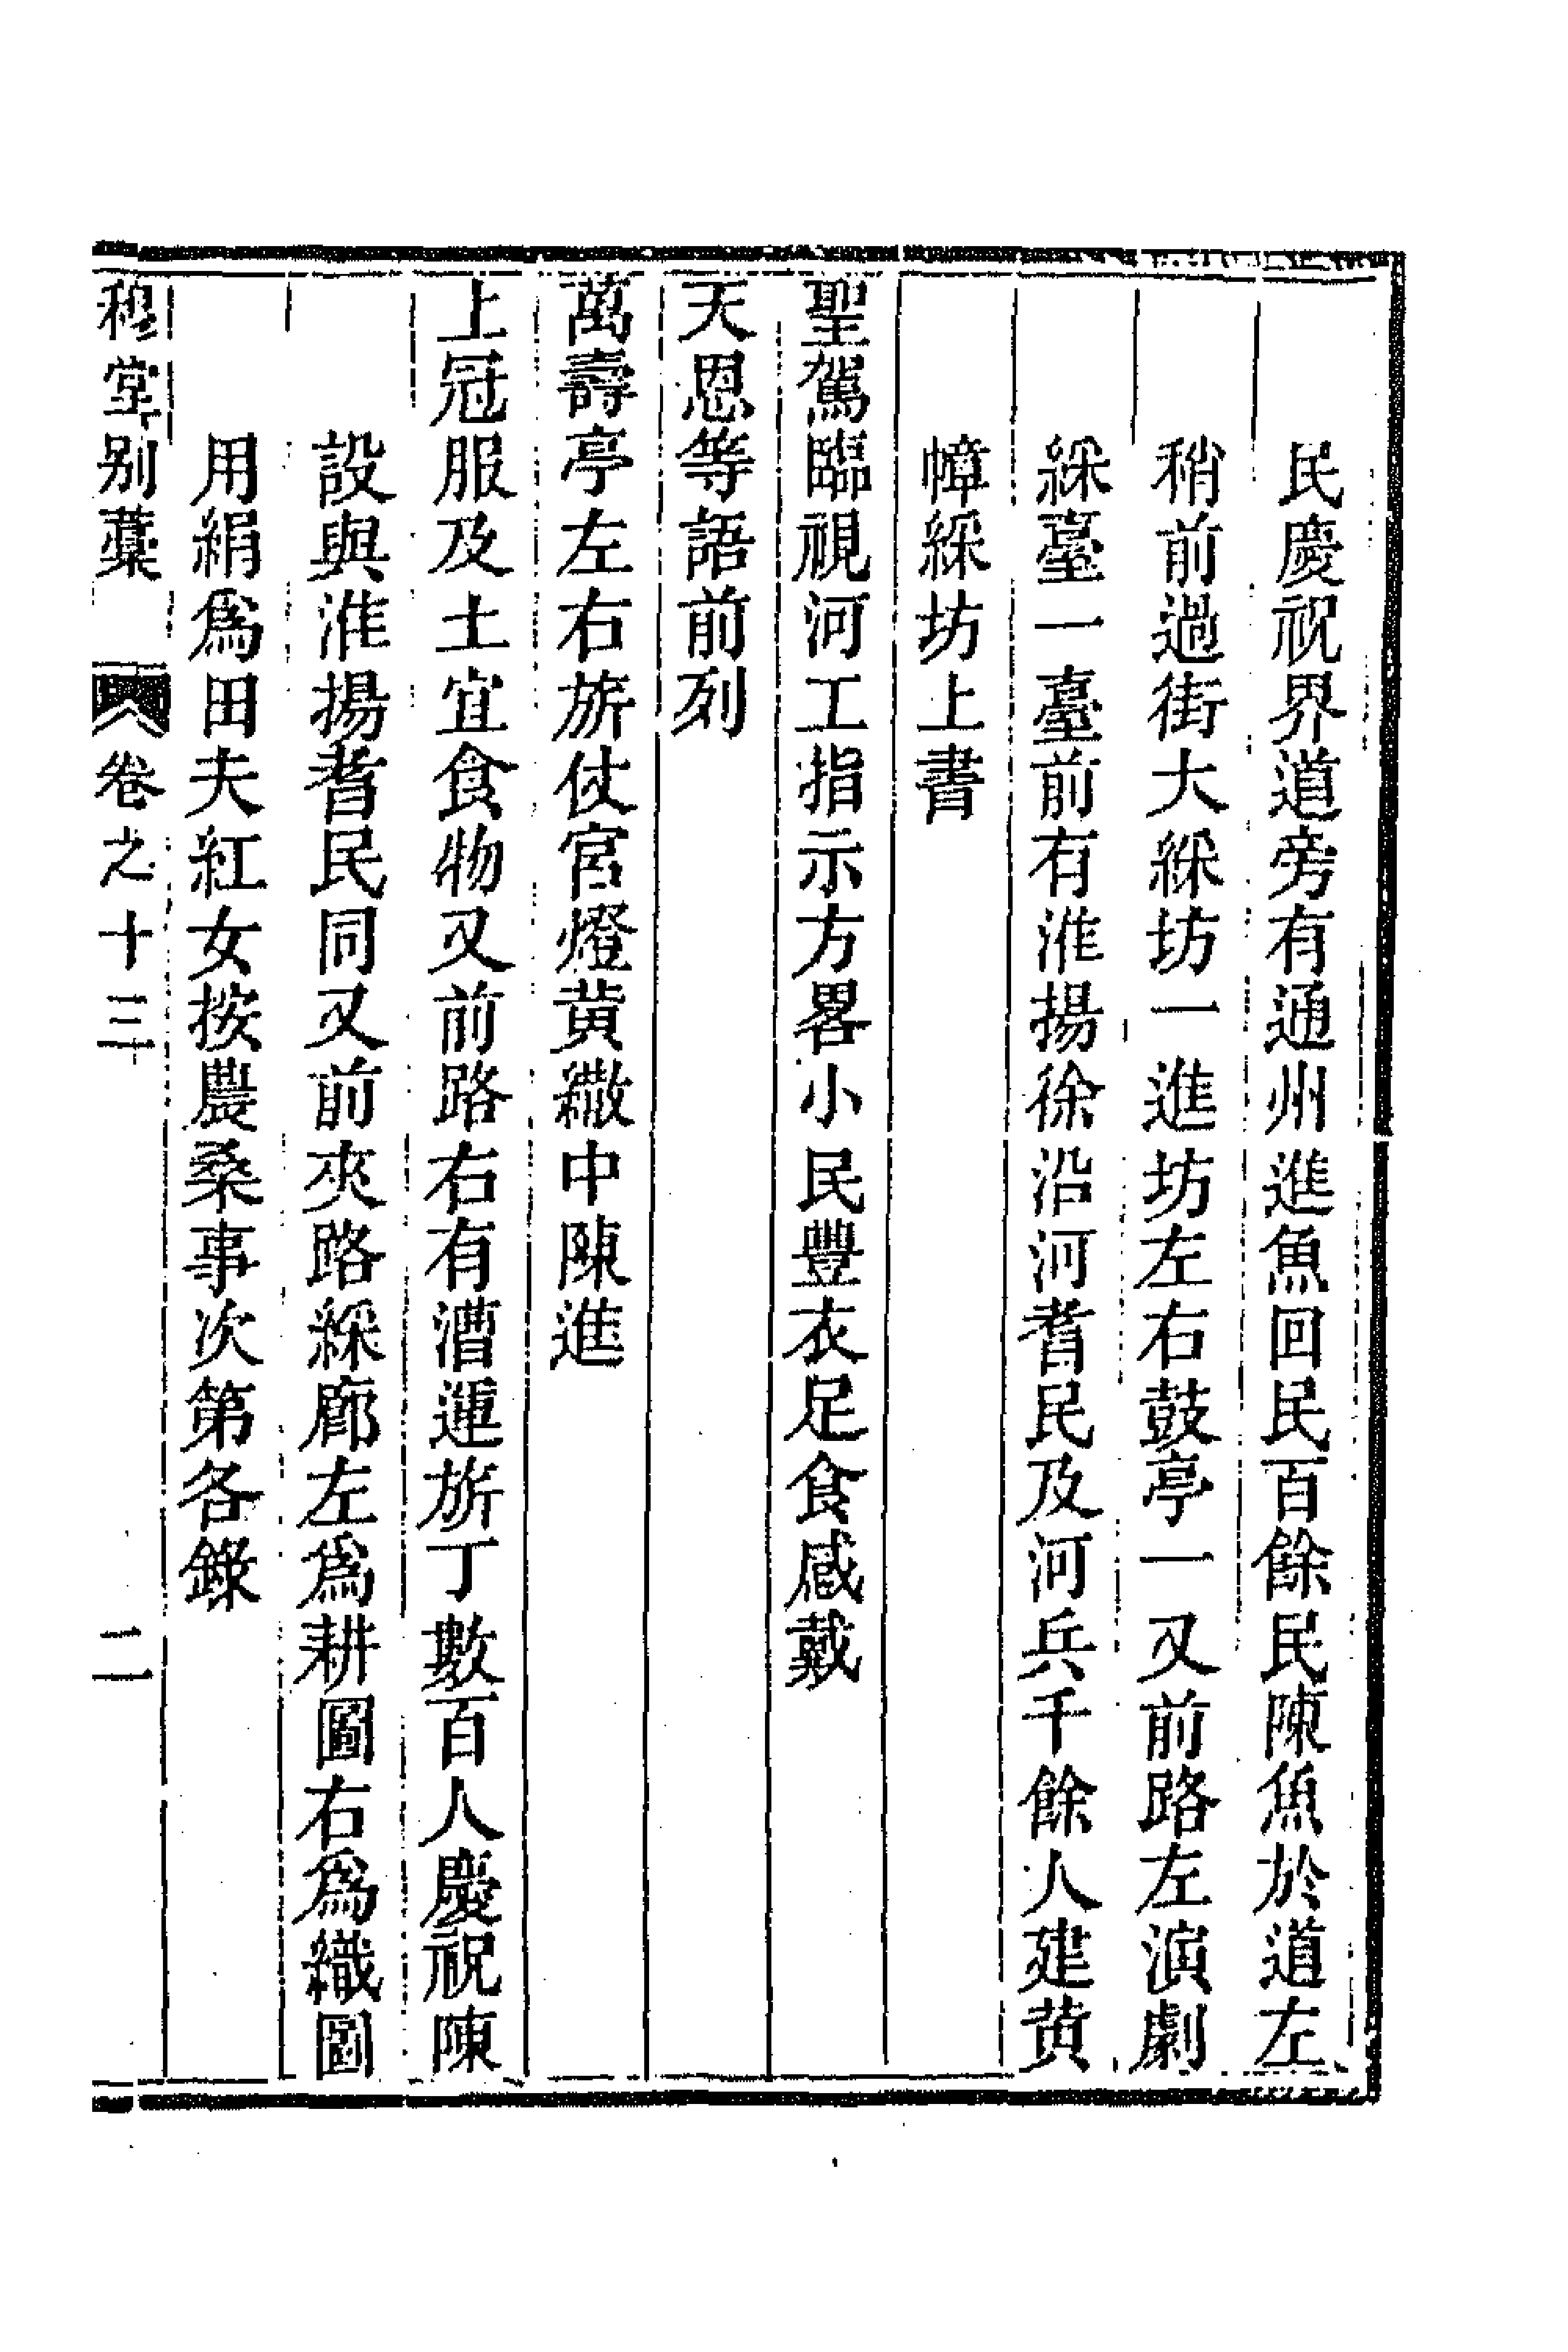 民慶祝界道旁有通州進魚回民百餘民陳魚於道左
稍前過街大綵坊一進坊左右鼓亭一又前路左演劇
綵臺一臺前有淮揚徐沿河耆民及河兵千餘人建黄
幛綵坊上書
聖駕臨視河工指示方畧小民豐衣足食感戴
天恩等語前列
萬壽亭左右旂仗宫燈黄繖中陳進
上冠服及土宜食物又前路右有漕運旂丁數百人慶祝陳
設與淮揚耆民同又前夾路綵廊左爲耕圖右爲織圖
用絹爲田夫紅女按農桑事次第各錄
穆堂别藁 卷之十三 二